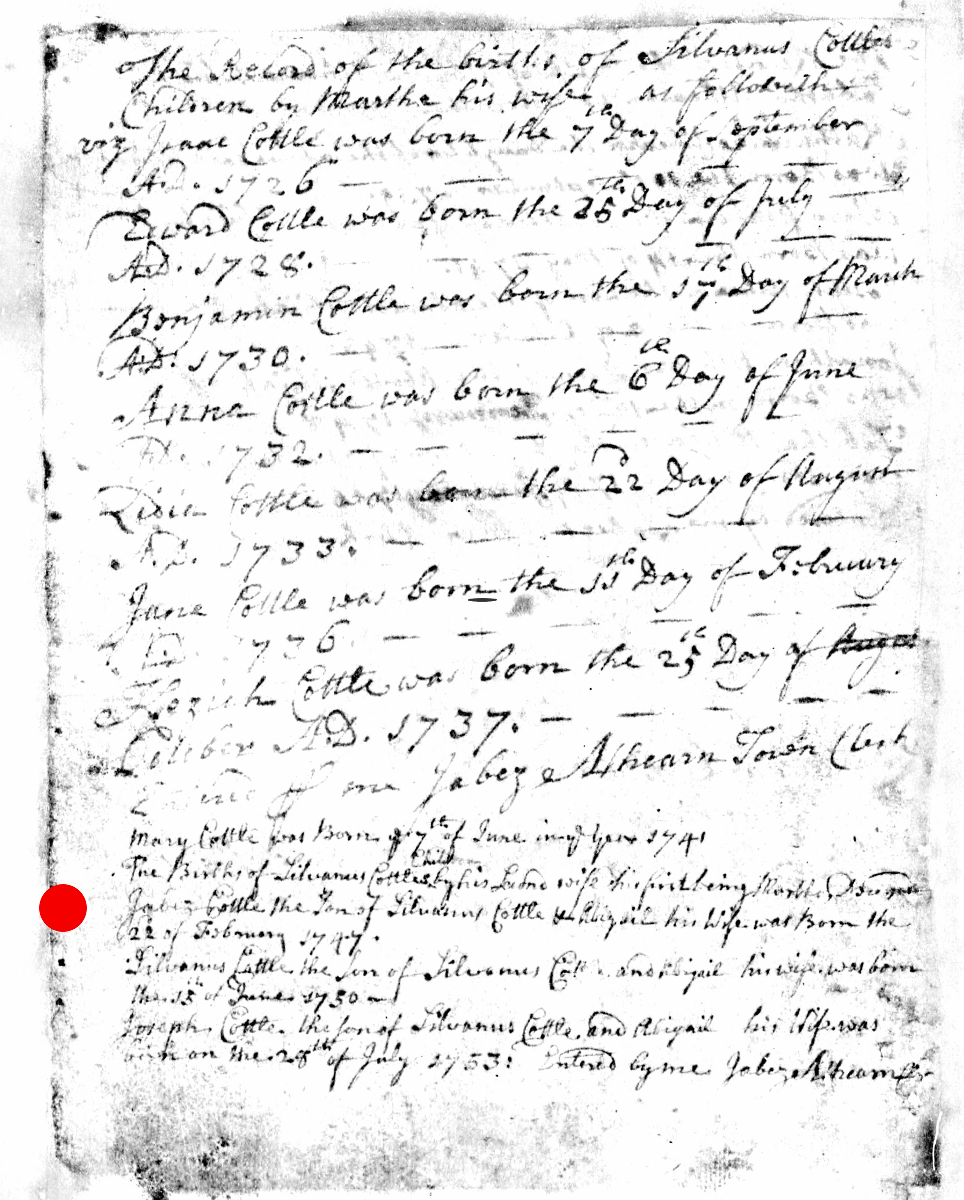 The Record of the births of Silvanus Cottles
Children by Martha his wife as followeth
viz Isaac Cottle was born the 7th Day of September
A.D. 1726
Edward Cottle was born the 25th Day of July
A.D. 1728.
Benjamin Cottle was born the 17th Day of March
A.D. 1730.
Anna Cottle was born the 6th Day of June
A.D. 1732.
Lidia Cottle was born the 22d Day of August
A.D. 1733.
Jane Cottle was born the 11th Day of Februury
A.D. 1736
Cottle was born the 25th Day of Augus
October A.D. 1737.
Entered me Jabez Athearn Town Clerk
Mary Cottle was Born ye 7th of June in ye Year 1741
The Births of Silvanus Cottles Children by his Second wife his first being Martha
Jabez Cottle the Son of Silvanus Cottle & Abigail his Wife was Born the
22 of February 1747.
Silvanus Cottle the Son of Silvanus Cottle and Abigail his wife was born
the 15th of June 1750
Joseph Cottle the son of Silvanus Cottle and Abigail his Wife was
born on the 28th of July 1753: Entered by me Jabez Athearn